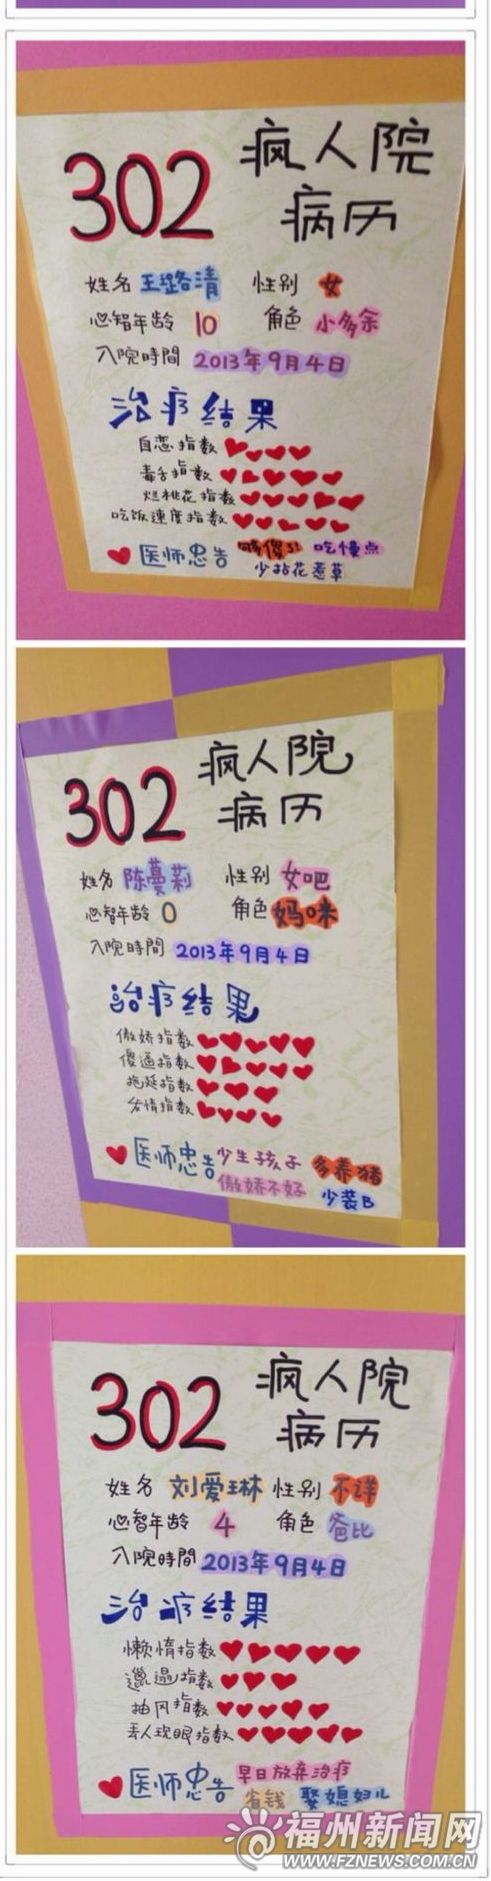 302 疯人院
病历
姓名 王璐清 性别 女
心智年龄 10 角色 小多余
入院時間 2013年9月4日
治疗结果
自恋指数
毒舌指数
烂桃花指数
吃饭速度指数
医师忠告 够傻 吃慢点
少拈花惹草
302 疯人院
病历
姓名 陈蔓莉 性别 女吧
心智年龄 0 角色 妈咪
入院時間 2013年9月4日
治疗结果
傲娇指数
傻逼指数
拖延指数
发情指数
医师忠告 少生孩子 多养猪
傲娇不好 少装B
302 疯人院
病历
姓名 刘爱琳 性别 不详
心智年龄 4 角色 爸比
入院時間 2013年9月4日
治疗结果
懒惰指数
邋遢指数
抽风指数
丢人现眼指数
医师忠告 早日放弃治疗
省钱 娶媳妇儿
福州新闻网
WWW.FZNEWS.COM.CN